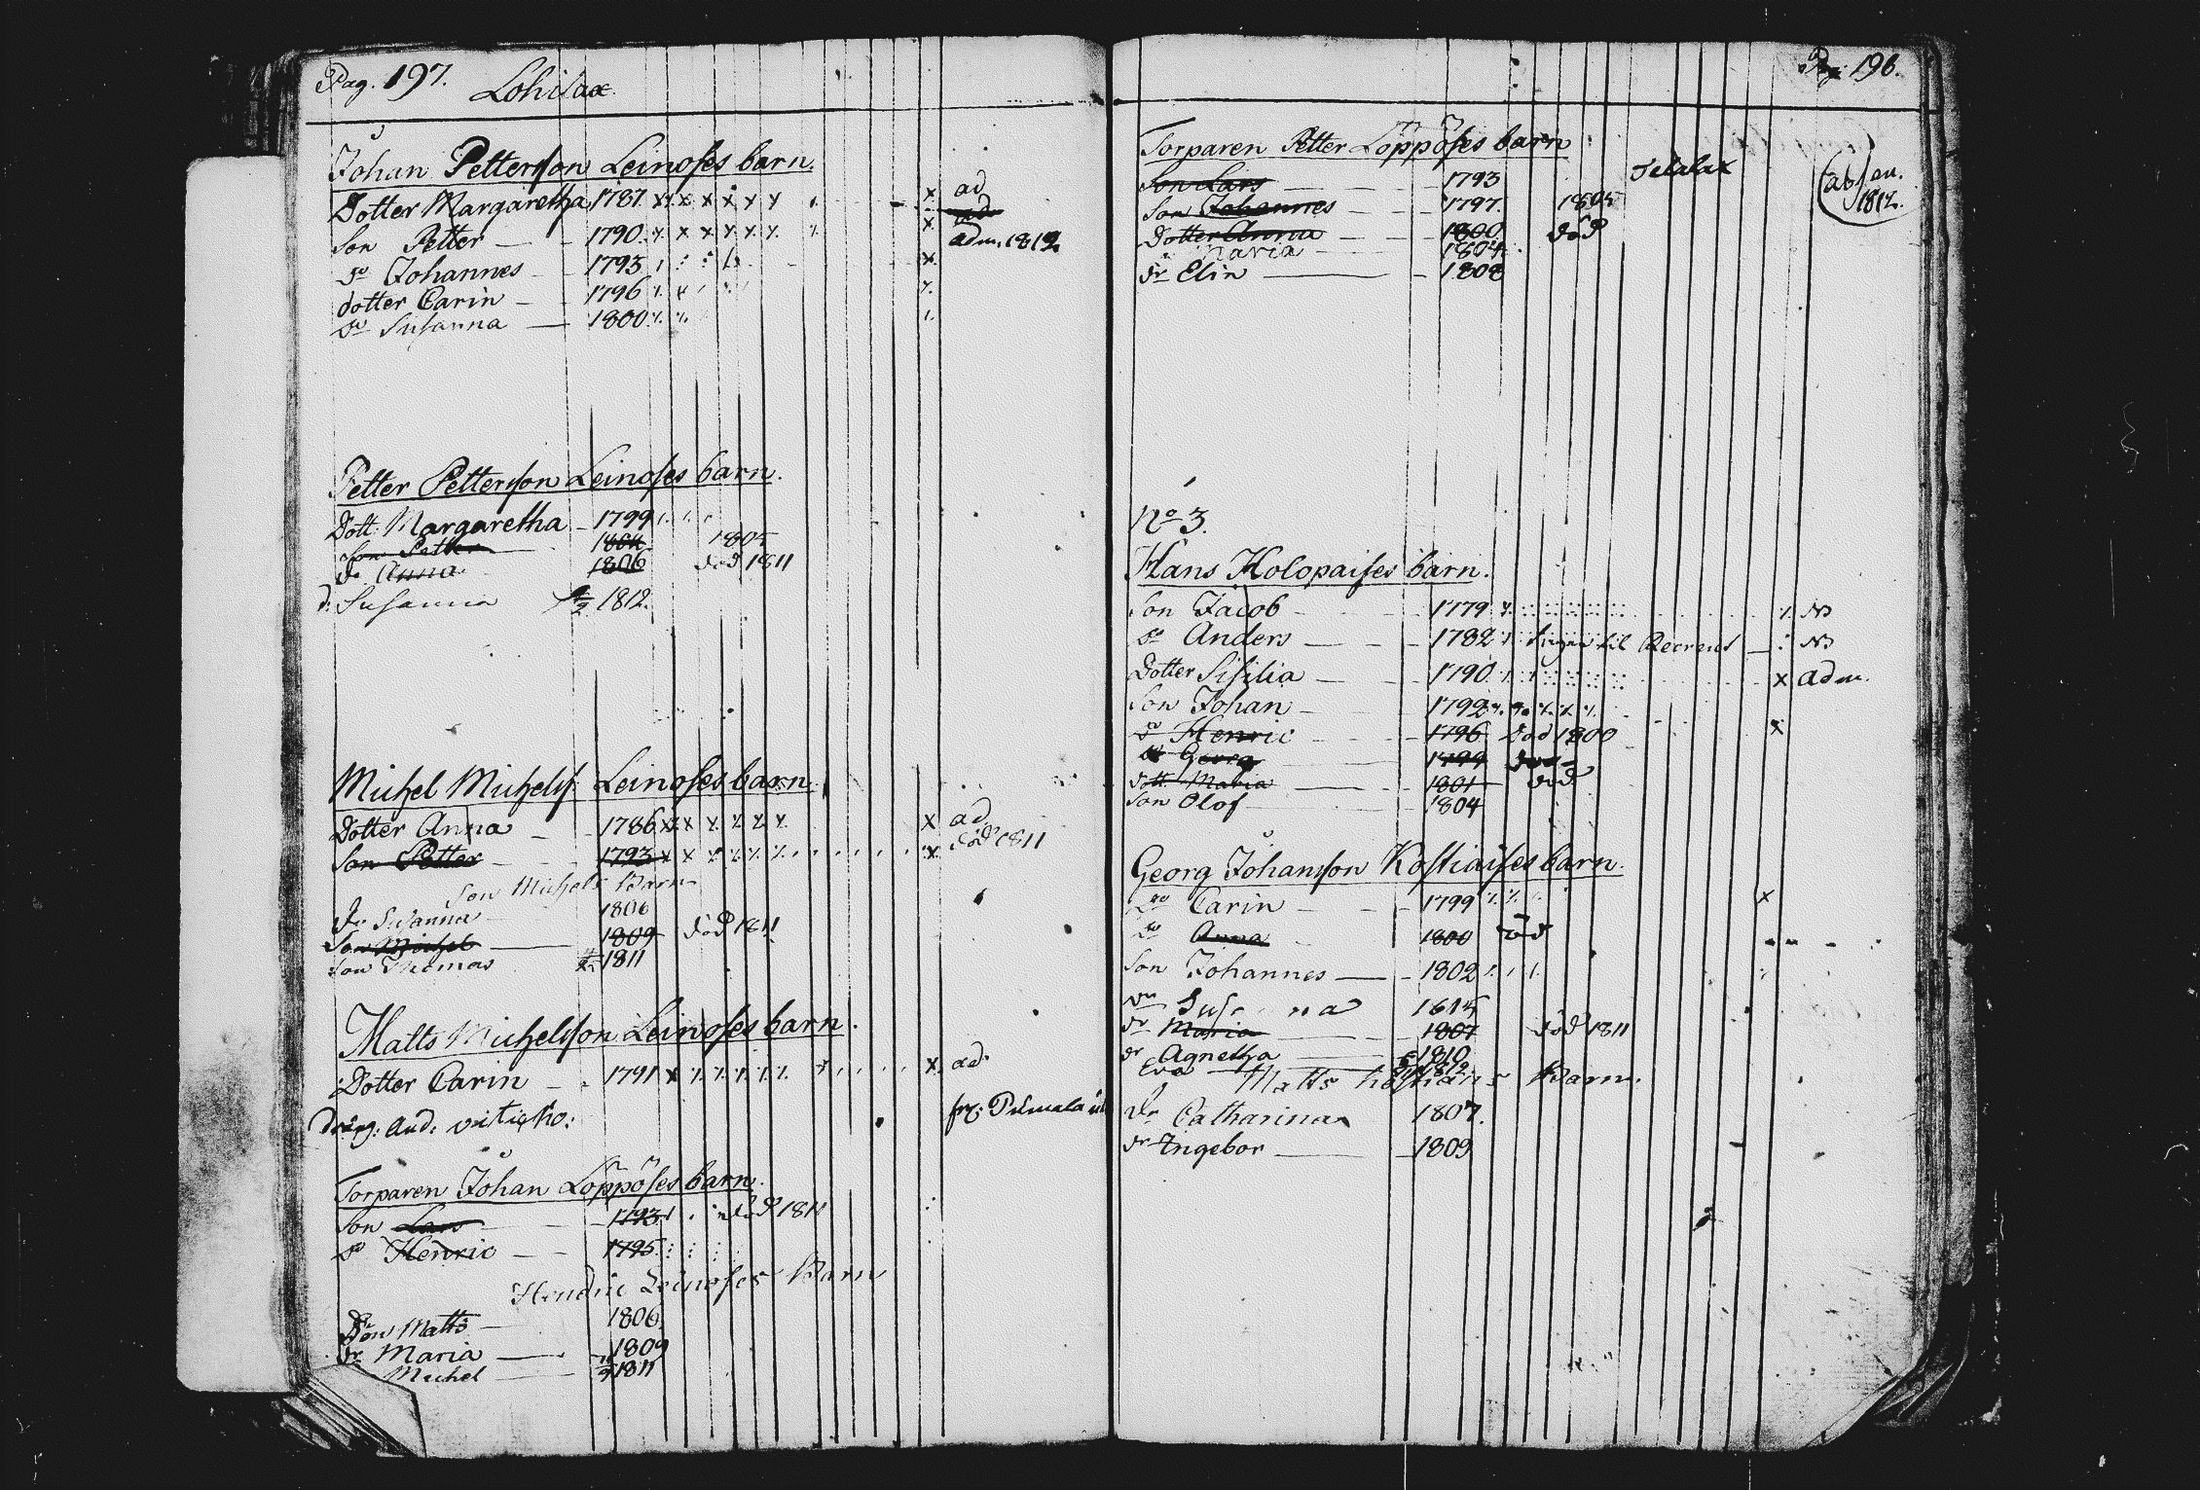 Pag. 197. Lohilax.
Johan Petterson Leinoses barn.
Dotter Margaretha 1787. x x x x x x x ad
Son Petter 1790. x x x x x x x ad
do Johannes 1793 x adm. 1812
dotter Carin 1796
do Susanna 1800
Petter Petterson Leinoses barn.
Dott: Margaretha 1799
Son Petter 1804 1805
do Anna 1806 död 1811
d: Susanna 1812.
Michel Michelss. Leinoses barn
Dotter Anna 1786 x x x x x x x ad
Son Petter 1793 x x x x x x x död 1811
Son Michels Barn
dr Susanna 1806
Son Michel 1809 död 1811
Son Thomas 1811
Matts Michelsson Leinoses barn.
Dotter Carin 1791 x x ad
dräng: And: fr: Pdmala
Torparen Johan Löppöses barn.
Son Lars 1793 död 1811
do Henric 1795
Hendric Leinoses Barn
Son Matts 1806
dr Maria 1809
Michel 1811
Pag: 196.
Torparen Petter Löppöses barn
Son Lars 1793
(absen. 1812.
Son Johannes 1797. 1805
Dotter Anna 1800 död
Maria 1804
dr Elin 1808
No 3.
Hans Holopaises barn.
Son Jacob 1779
do Anders 1782 til Recreut
Dotter Sisilia 1790 x adm.
Son Johan 1792
do Henric 1796 död 1800 x
do Georg 1799
dott. Maria 1801 död
Son Olof 1804
Georg Johansson Kostiaises barn.
Carin 1799 x
do Anna 1800 död
Son Johannes 1802
dr
dr Maria 1807 död 1811
dr Agnetha 1810
Eva 1812
Matts Barn.
dr Catharina 1807.
dr Ingebor 1809